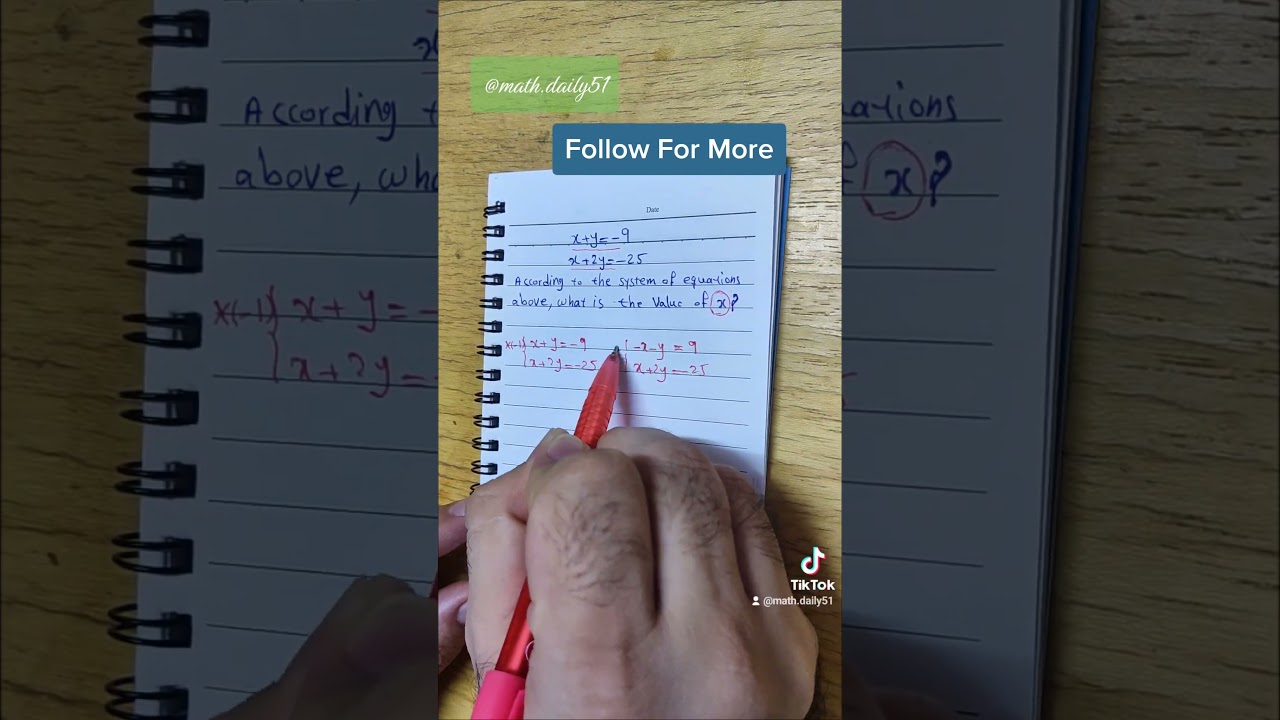 @math.daily51
Follow For More
Date
x+y=-9
x+2y=-25
According to the system of equations
above, what is the value of x?
x(-1) x+y=-9
x+2y=-25
-x-y=9
x+2y=-25
TikTok
@math.daily51
x
According t
above, wha
x(-1) x+y=-
x+2y=
ations
x?